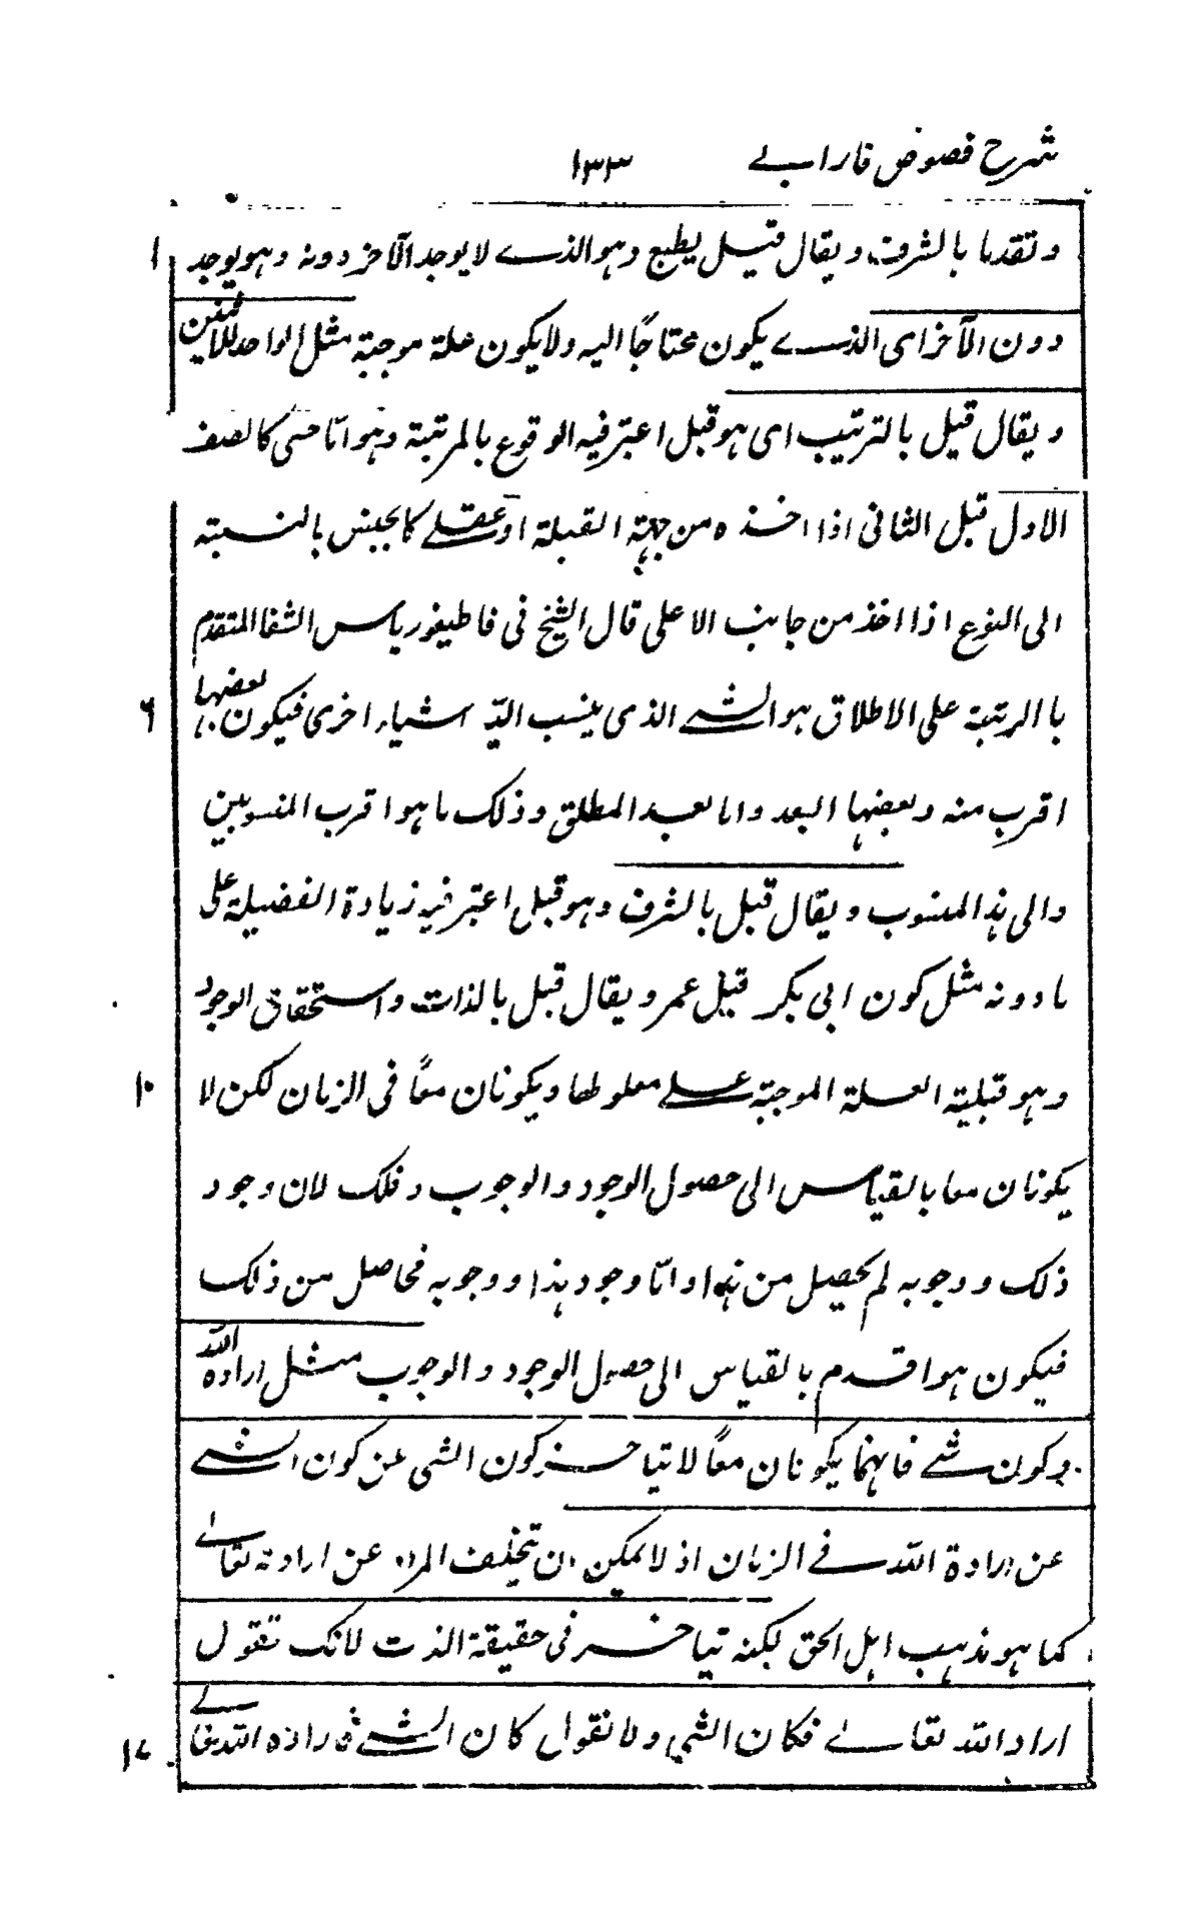 شرح فصوص فارابے ١٣٣
وتقدما بالشرف ويقال قبل بطبع وهو الذے لا يوجد الآخر دونه وهو يوجد ١
دون الآخر اى الذے يكون محتاجًا اليه ولا يكون علة موجبة مثل الواحد للاثنين
ويقال قبل بالترتيب اى هو قبل اعتبر فيه الوقوع بالمرتبة وهو امّا حسى كالصف
الاول قبل الثانى اذا اخذه من جهة القبلة او عقلے كالجنس بالنسبته
الى النوع اذا اخذ من جانب الاعلى قال الشيخ فى قاطيغورياس الشفا المتقدم
باالرتبة على الاطلاق هو الشے الذى ينسب اليه اشياء اخرى فيكون بعضها ٦
اقرب منه وبعضها ابعد واما بعد المطلق وذلك ما هو اقرب المنسوبين
والى هذا المنسوب ويقال قبل بالشرف وهو قبل اعتبر فيه زيادة الفضيلة على
ما دونه مثل كون ابى بكر قبل عمر ويقال قبل بالذات واستحقاق الوجود
وهو قبلية العلة الموجبة علے معلولها ويكونان معًا فى الزمان لكن لا ١٠
يكونان معا بالقياس الى حصول الوجود والوجوب وذلك لان وجود
ذلك ووجوبه لم يحصل من هذا وامّا وجود هذا ووجوبه فحاصل من ذلك
فيكون هو اقدم بالقياس الى حصول الوجود والوجوب مثل ارادة الله
وكون شے فانهما يكونان معًا لا يتاخر كون الشى عن كون الشے
عن ارادة الله فے الزمان اذ لا يمكن ان تخلف المراد عن ارادته تعالے
كما هو مذهب اهل الحق لكنه يتاخر فى حقيقة الذت لانك تقول
اراد الله تعالے فكان الشى ولا نقول كان الشے فاراده الله تعالے ١٧